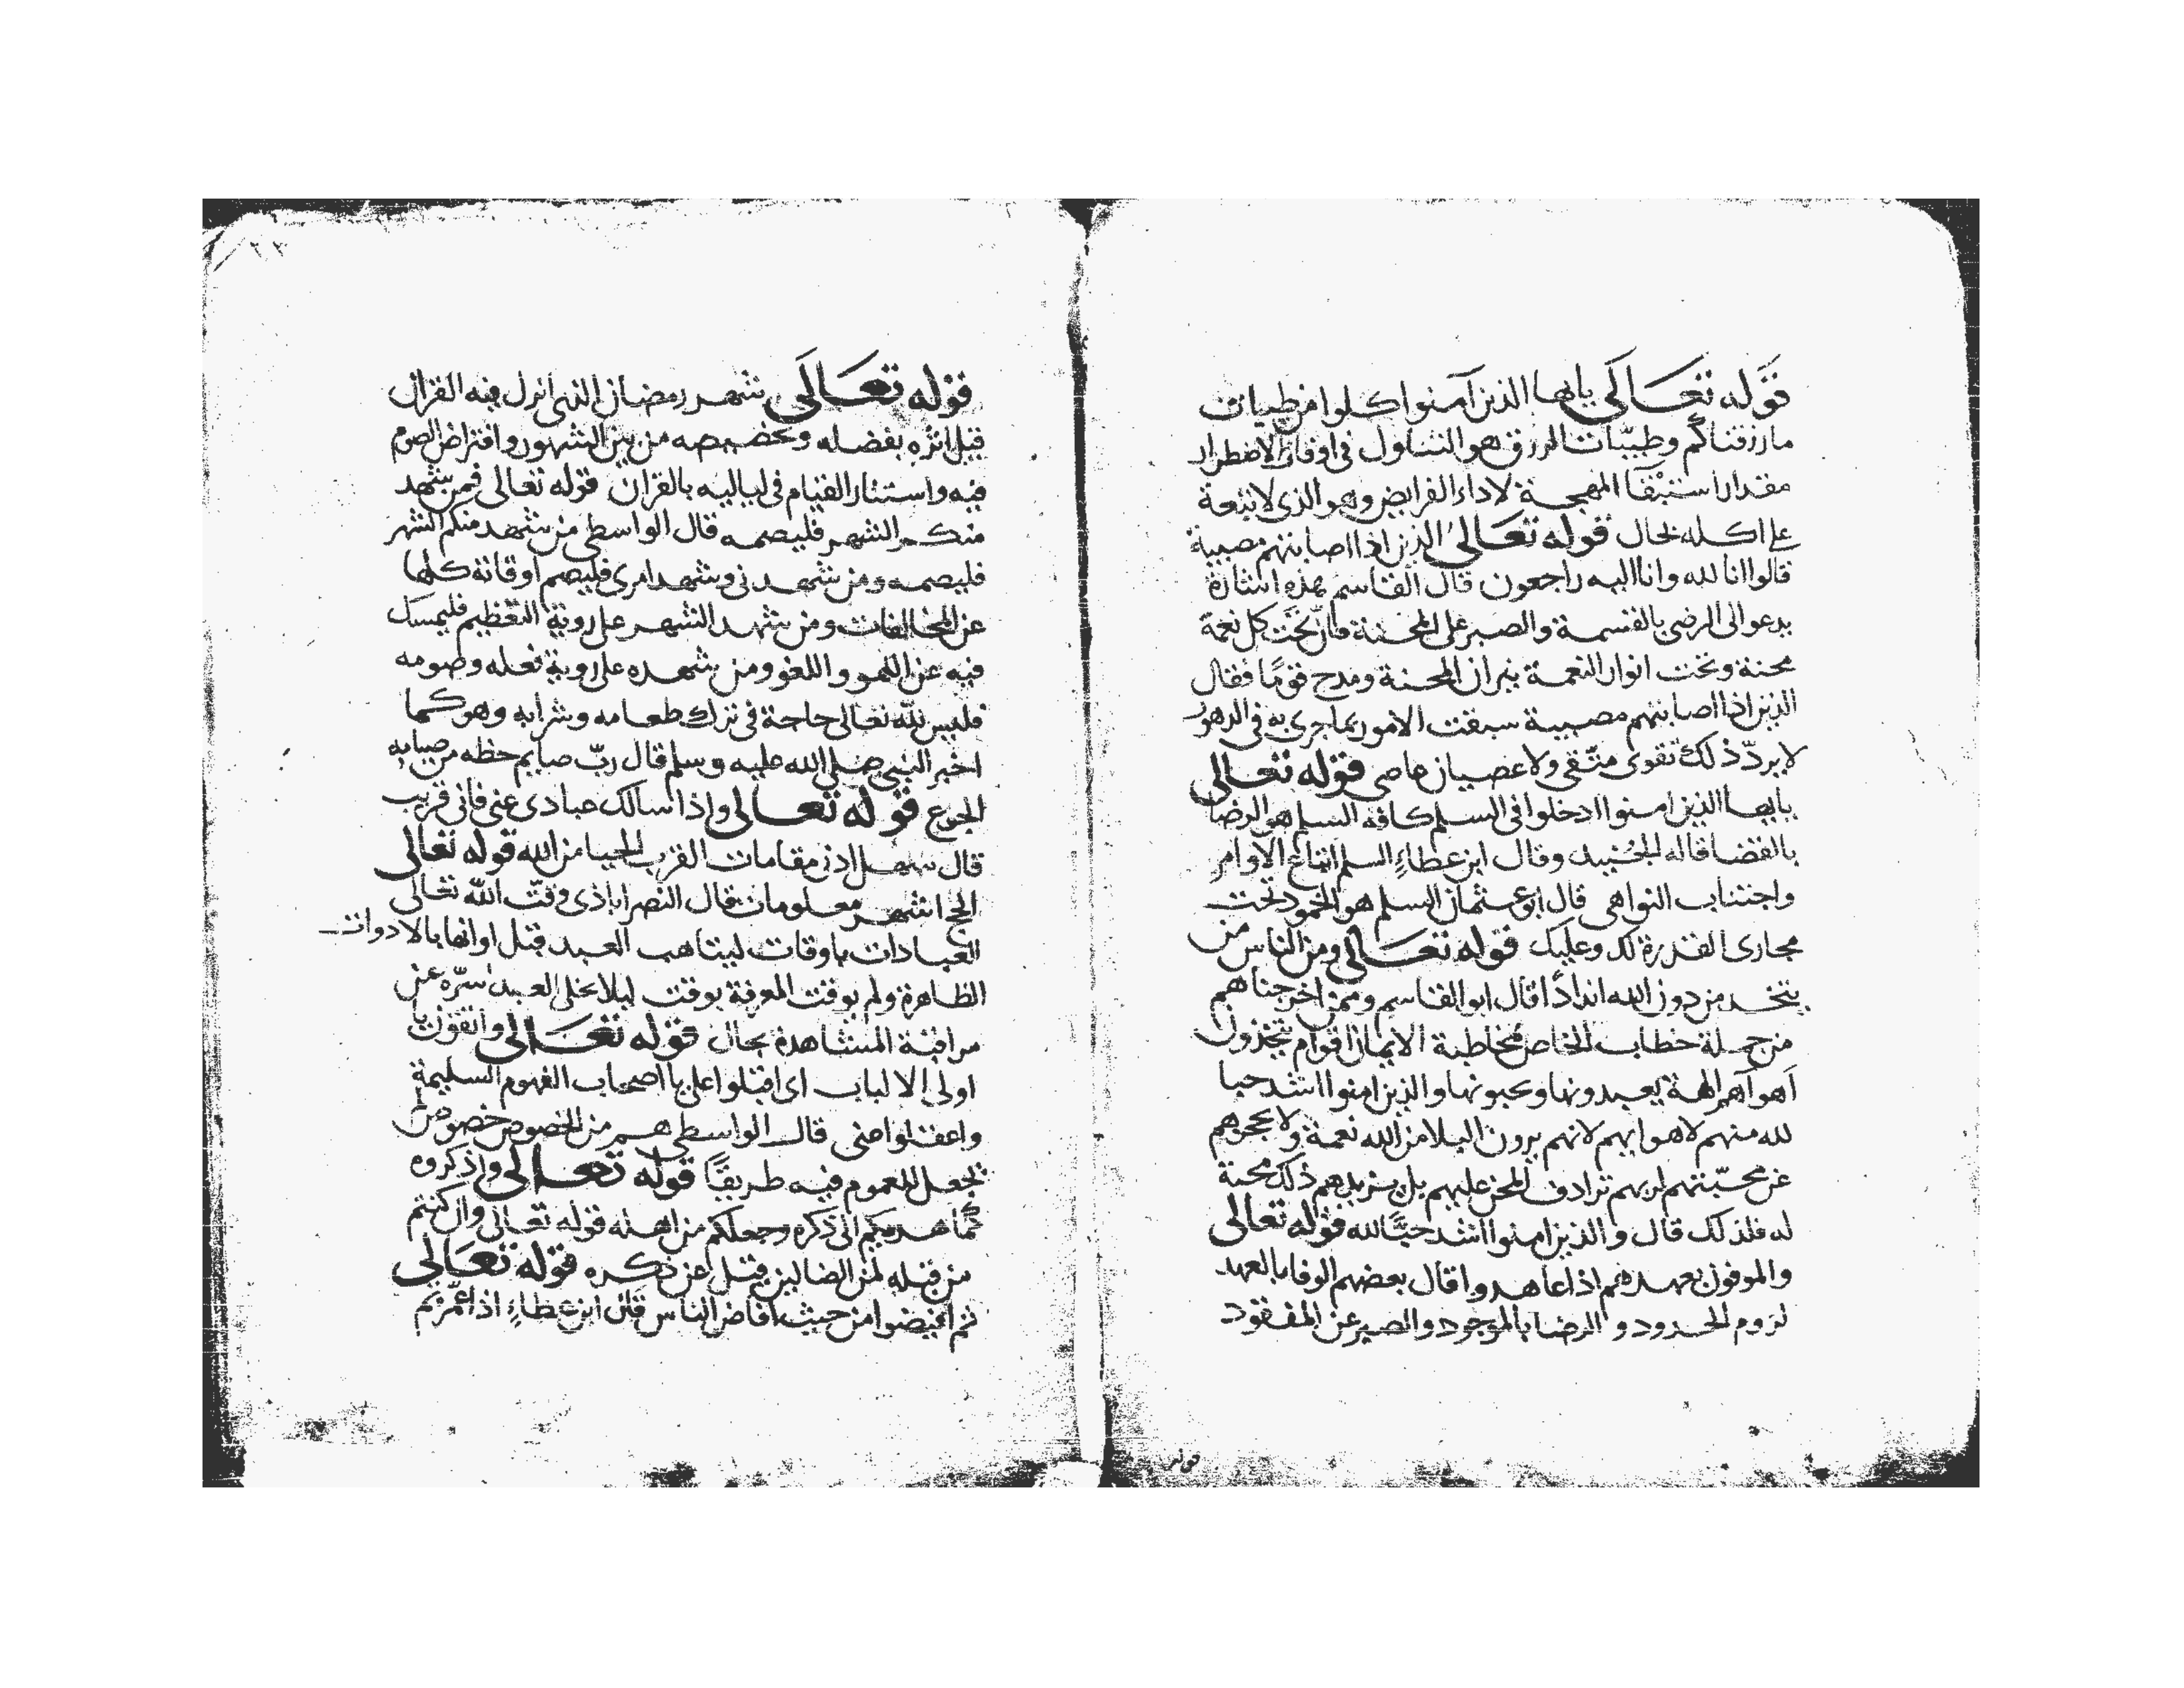 قوله تعالى يايها الذين آمنوا كلوا من طيبات
ما رزقناكم وطيبات الرزق هو التناول في اوقات الاضطرار
مقدار استبقا المهجة لاداء الفرايض وهو الذي لا تبعة
على اكله بحال قوله تعالى الذين اذا اصابتهم مصيبة
قالوا انا لله وانا اليه راجعون قال القاسم هذه اشارة
يدعوا الى الرضى بالقسمة والصبر على المحنة فان تحت كل نعمة
محنة وتحت انوار النعمة نيران المحنة ومدح قومًا فقال
الذين اذا اصابتهم مصيبة سبقت الامور بما جرى به في الدهور
لا يردّ ذلك تقوى متّقي ولا عصيان عاصي قوله تعالى
يايها الذين امنوا ادخلوا في السلم كافه السلم هو الرضا
بالقضا قاله الجُنيد وقال ابن عطاءٍ السلم اتباع الاوامر
واجتناب النواهي قال ابو عثمان السلم هو الخمود تحت
مجارى القدرة لك وعليك قوله تعالى ومن الناس من
يتخد من دون الله اندادًا قال ابو القاسم وممن اخرجناهم
من جملة خطاب الخاص مخاطبة الايمان اقوام يتخذون
اهوآهم الهة يعبدونها ويحبونها والذين امنوا اشد حبا
لله منهم لاهوايهم لانهم يرون البلا من الله نعمة ولا يحجزهم
عن محبّتهم لربهم ترادف المحن عليهم بل يزيدهم ذلك محبة
له فلذلك قال والذين امنوا اشد حبًّا لله قوله تعالى
والموفون بعهدهم اذا عاهدوا قال بعضهم الوفا بالعهد
لزوم الحدود والرضا بالموجود والصبر عن المفقود
قوله
قوله تعالى شهر رمضان الذي انزل فيه القران
قيل انزه بفضله وتخصيصه من بين الشهور وافتراض الصوم
فيه واستنار القيام في لياليه بالقران قوله تعالى فمن شهد
منكم الشهر فليصمه قال الواسطي من شهد منكم الشهر
فليصمه ومن شهدني وشهد امري فليصم اوقاته كلها
عن المخالفات ومن شهد الشهر على روية التعظيم فليمسك
فيه عن اللهو واللغو ومن شهده على روية فعله وصومه
فليس لله تعالى حاجة في ترك طعامه وشرابه وهو كما
اخبر النبي صلى الله عليه وسلم قال ربّ صايم حظه من صيامه
الجوع قوله تعالى واذا سالك عبادي عني فاني قريب
قال سهل ادنى مقامات القرب الحيا من الله قوله تعالى
الحج اشهر معلومات قال النصراباذي وقّت الله تعالى
العبادات باوقات ليتاهب العبد قبل اوانها بالادوات
الظاهرة ولم يوقت المعرفة بوقت ليلا يخلى العبد سرّه عن
مراقبة المشاهدة بحال قوله تعالى واتقون يا
اولي الالباب اي اقبلوا على يا اصحاب الفهوم السليمة
واعقلوا عني قال الواسطي هم من الخصوص خصوص من
يجعل للعموم فيه طريقًا قوله تعالى واذكروه
كما هديكم الى ذكره وجعلكم من اهله قوله تعالى وان كنتم
من قبله لمن الضالين قيل عن ذكره قوله تعالى
ثم افيضوا من حيث افاض الناس قال ابن عطاءٍ اذا عمّرتم